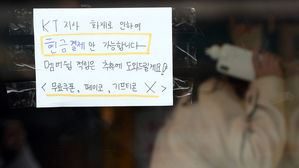 KT 지사 화재로 인하여
현금결제만 가능합니다~
멤버쉽 적립은 추후에 도와드릴게요!
< 무료쿠폰, 페이코, 기프티콘 X >